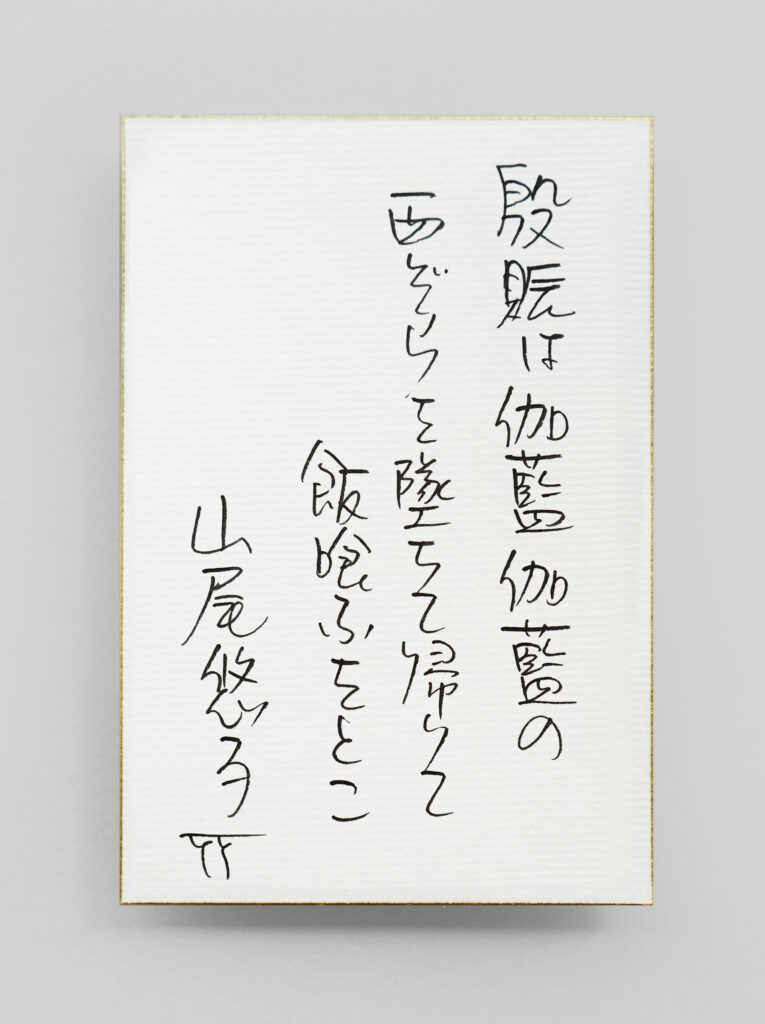 殷賑は伽藍伽藍の
西ぞらを墜ちて帰りて
飯喰ふをとこ
山尾悠子